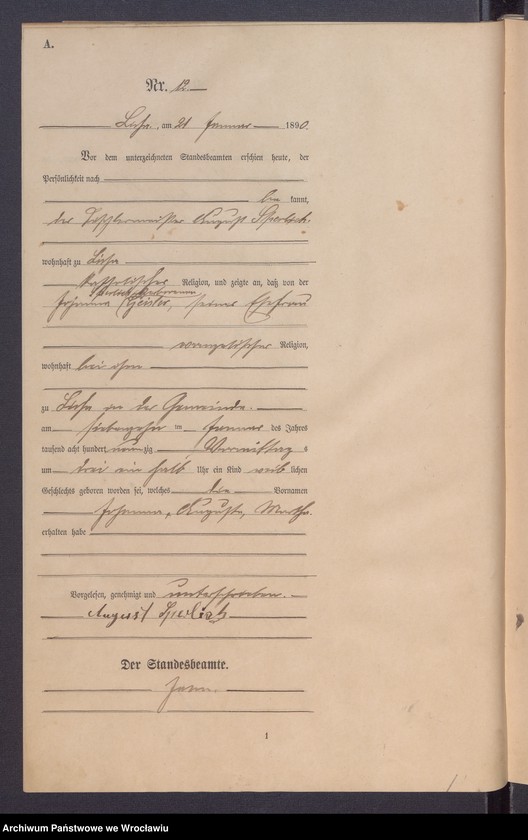 A.
Nr. 12.
am 21 Januar 1890.
Vor dem unterzeichneten Standesbeamten erschien heute, der
Persönlichkeit nach
be kannt,
der Tischlermeister August Sperlich.
wohnhaft zu
katholischer Religion, und zeigte an, daß von der
Sperlich geborenen
Johanna Geisler, seiner Ehefrau
evangelischer Religion,
wohnhaft bei ihm
zu in der Gemeinde.
am siebzehn im Januar des Jahres
tausend acht hundert neunzig Vormittag s
um drei ein halb Uhr ein Kind weib lichen
Geschlechts geboren worden sei, welches die Vornamen
Johanna, Auguste, Martha.
erhalten habe
Vorgelesen, genehmigt und unterschrieben.
August Sperlich
Der Standesbeamte.
1
Archiwum Państwowe we Wrocławiu